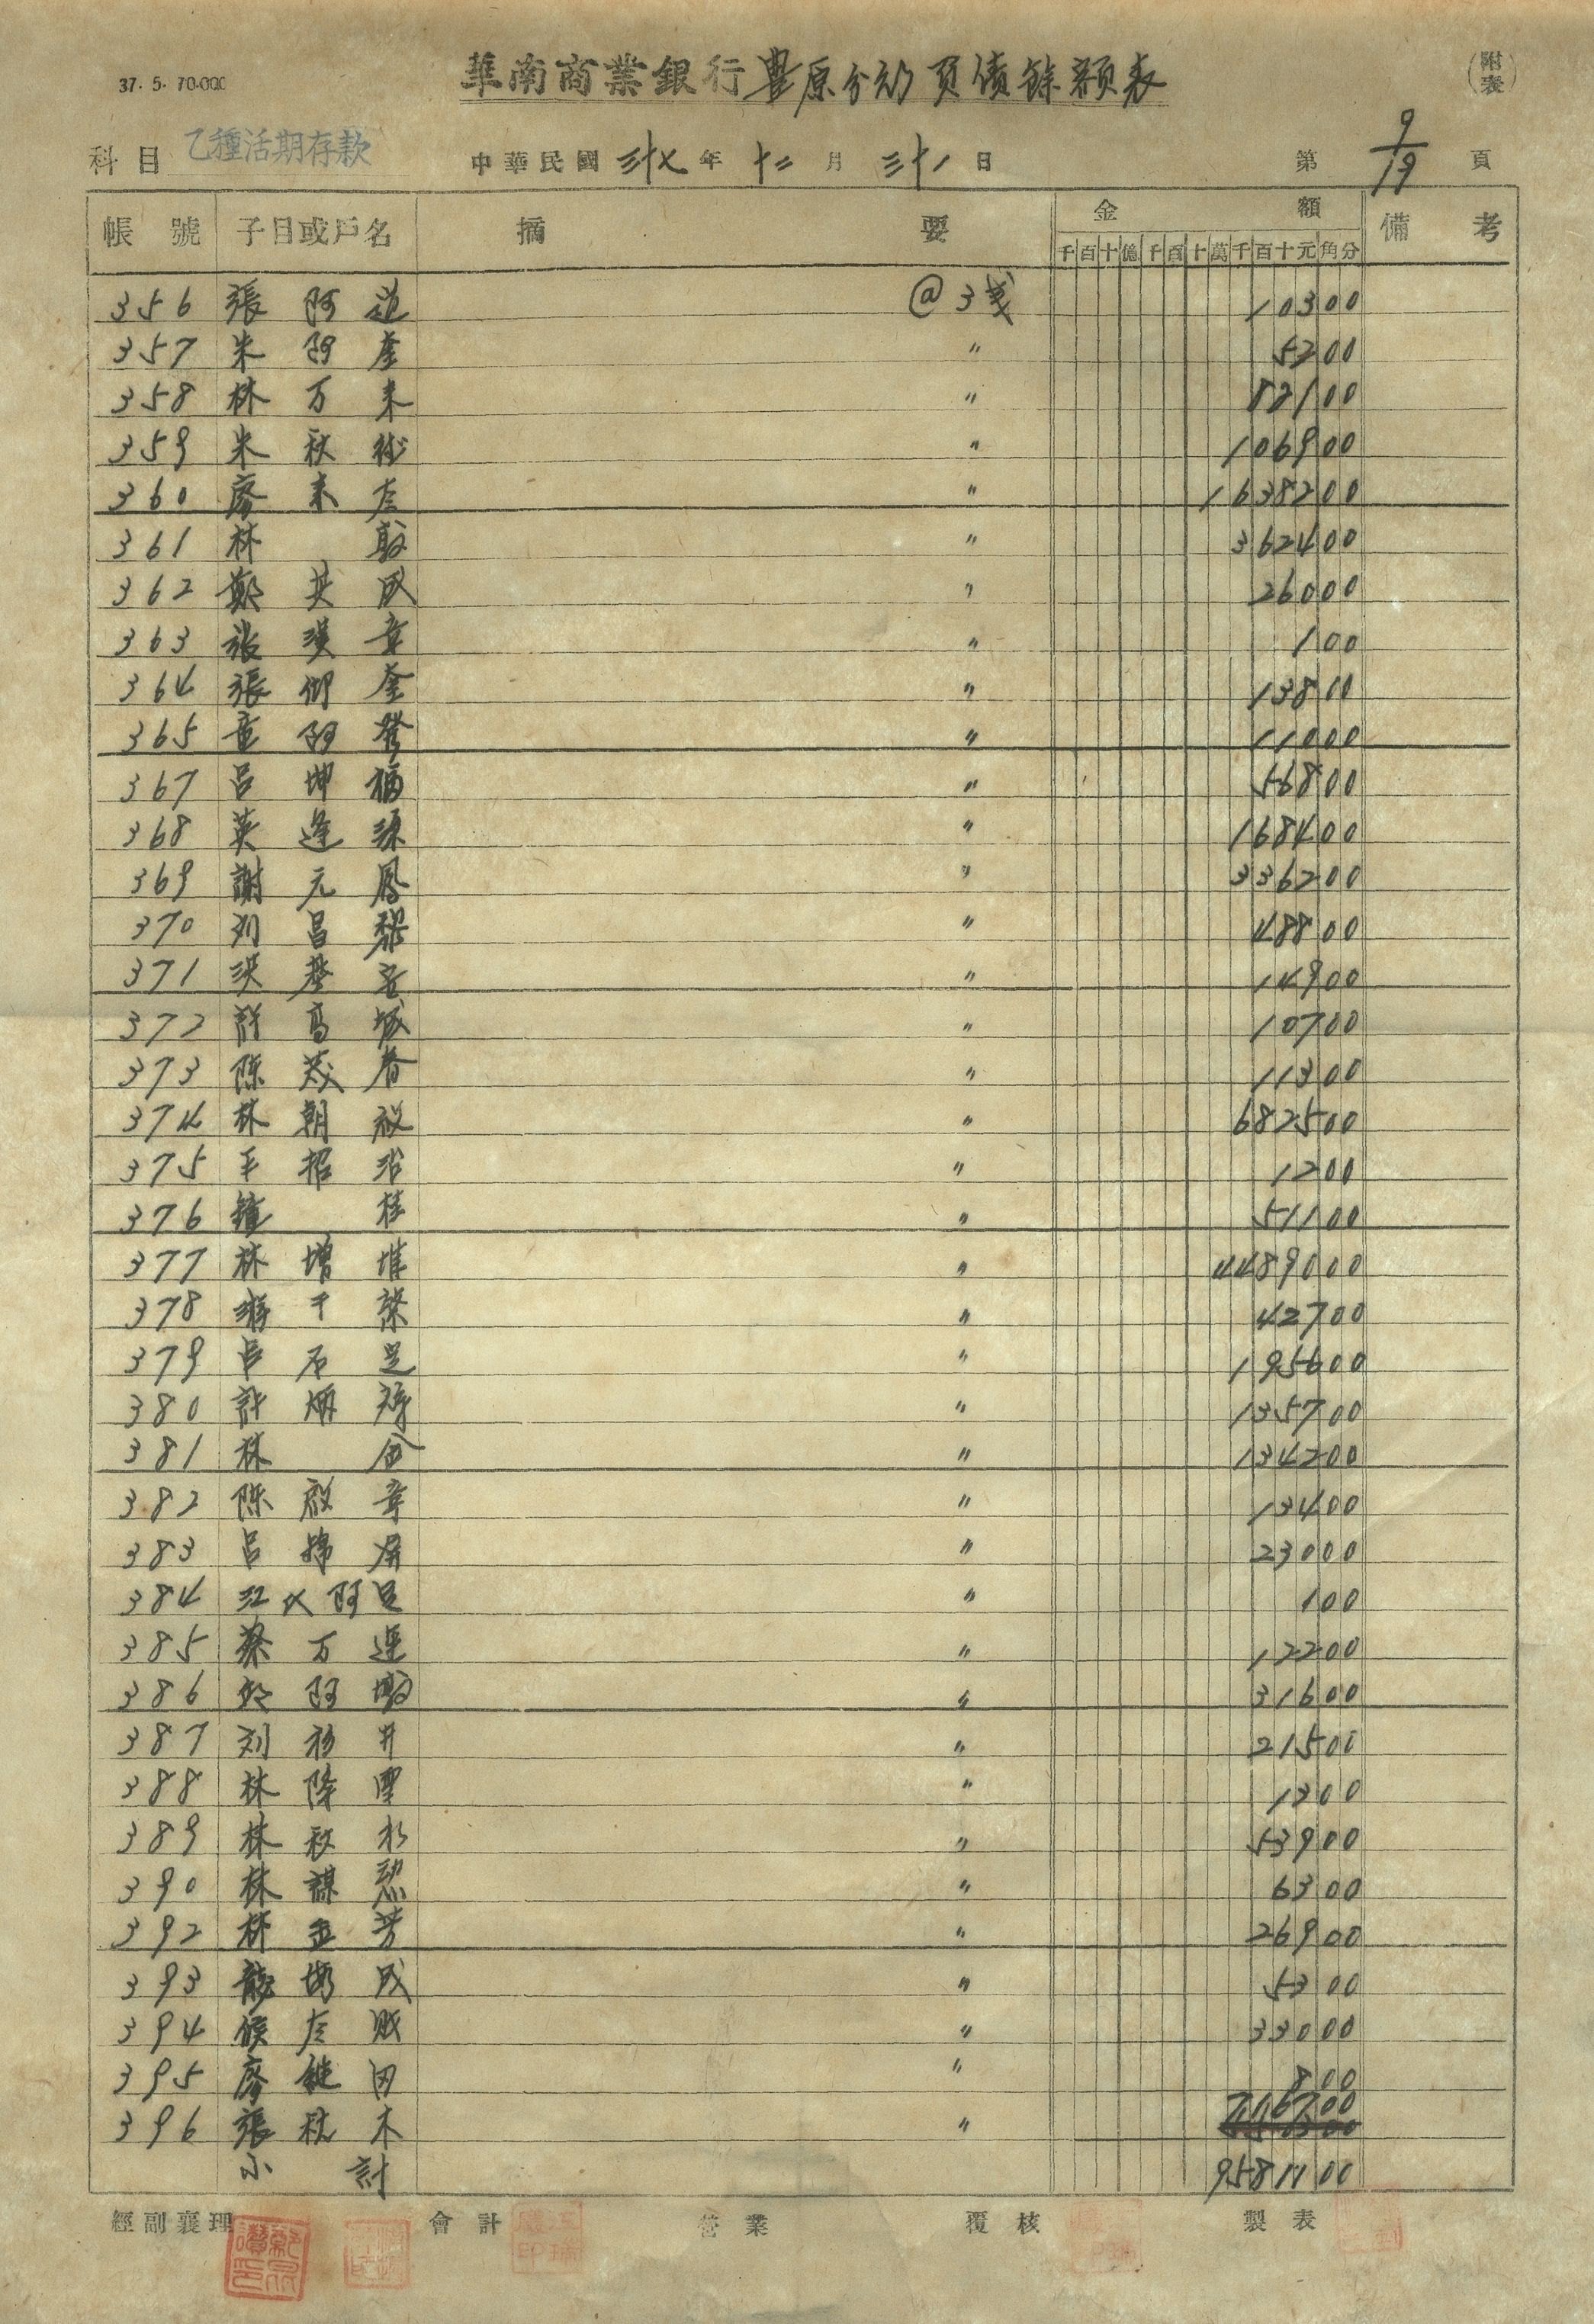 37. 5. 70.000
華南商業銀行豐原分行資債餘額表
(附表)
科目 乙種活期存款 中華民國 三十七 年 十二 月 三十一 日 第 9/19 頁
帳號 子目或戶名 摘要 金額 備考
千百十億千百十萬千百十元角分
356 張阿 @ 3 10300
357 朱阿 " 5200
358 林万来 " 82100
359 朱秋 " 106900
360 廖来 " 1638200
361 林 " 362400
362 鄭其成 " 26000
363 張漢章 " 100
364 張仰奎 " 13800
365 童阿登 " 11000
367 呂坤福 " 56800
368 英逢源 " 168400
369 謝元鳳 " 336200
370 刘昌黎 " 48800
371 洪 " 14900
372 許高城 " 10700
373 陳茂春 " 11300
374 林朝啟 " 682500
375 王招治 " 1200
376 鐘桂 " 51100
377 林增堆 " 4489000
378 游千 " 42700
379 呂石足 " 195600
380 許炳 " 135700
381 林金 " 134200
382 陳啟章 " 13400
383 呂錦屏 " 23000
384 江氏阿呂 " 100
385 蔡万運 " 12200
386 阿 " 31600
387 刘杉井 " 21500
388 林降里 " 1300
389 林秋水 " 53900
390 林謀烈 " 6300
392 林金芳 " 26900
393 成 " 5300
394 侯 " 33000
395 廖継田 " 800
396 張秋木 "
小計
經副襄理 會計 營業 覆核 製表